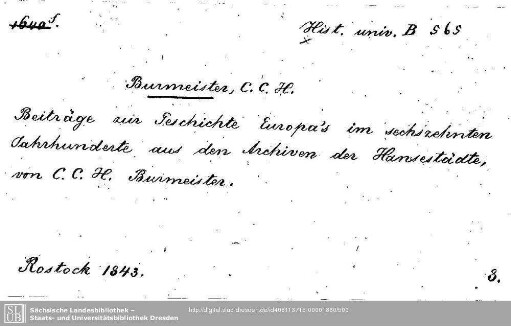 1640 f. Hist. univ. B 565
Burmeister, C. C. H.
Beiträge zur Geschichte Europa's im sechszehnten
Jahrhunderte aus den Archiven der Hansestädte,
von C. C. H. Burmeister.
Rostock 1843. 8.
SLUB
Sächsische Landesbibliothek –
Staats- und Universitätsbibliothek Dresden